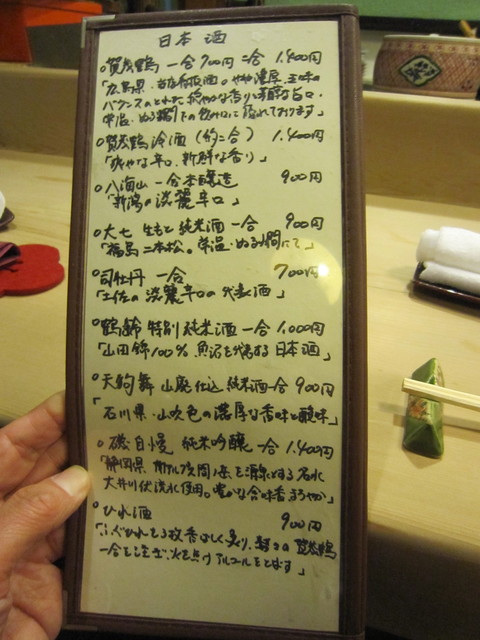 日本酒
○賀茂鶴 一合700円 二合 1,400円
「広島県 当店有取酒。やや濃厚、五味の
バランスのとれた爽やかな香りと芳醇な旨口。
常温・ぬる燗での飲み口に優れております」
○賀茂鶴 冷酒 (約二合) 1,400円
「爽やかな辛口、新鮮な香り」
○八海山 一合本醸造 900円
「新潟の淡麗辛口」
○大七 生もと 純米酒 一合 900円
「福島 二本松。常温・ぬる燗にて」
○司牡丹 一合 700円
「土佐の淡麗辛口の代表酒」
○鶴齢 特別純米酒 一合 1,000円
「山田錦100% 魚沼を代表する日本酒」
○天狗舞 山廃仕込 純米酒一合 900円
「石川県・山吹色の濃厚な香味と酸味」
○磯自慢 純米吟醸 一合 1,400円
「静岡県 南アルプス間ノ岳を源流とする名水
大井川伏流水使用。豊かな合味香まろやか」
○ひれ酒 900円
「ふぐひれを香ばしく炙り、熱々の賀茂鶴
一合をそそぎ、火を点けアルコールをとばす」